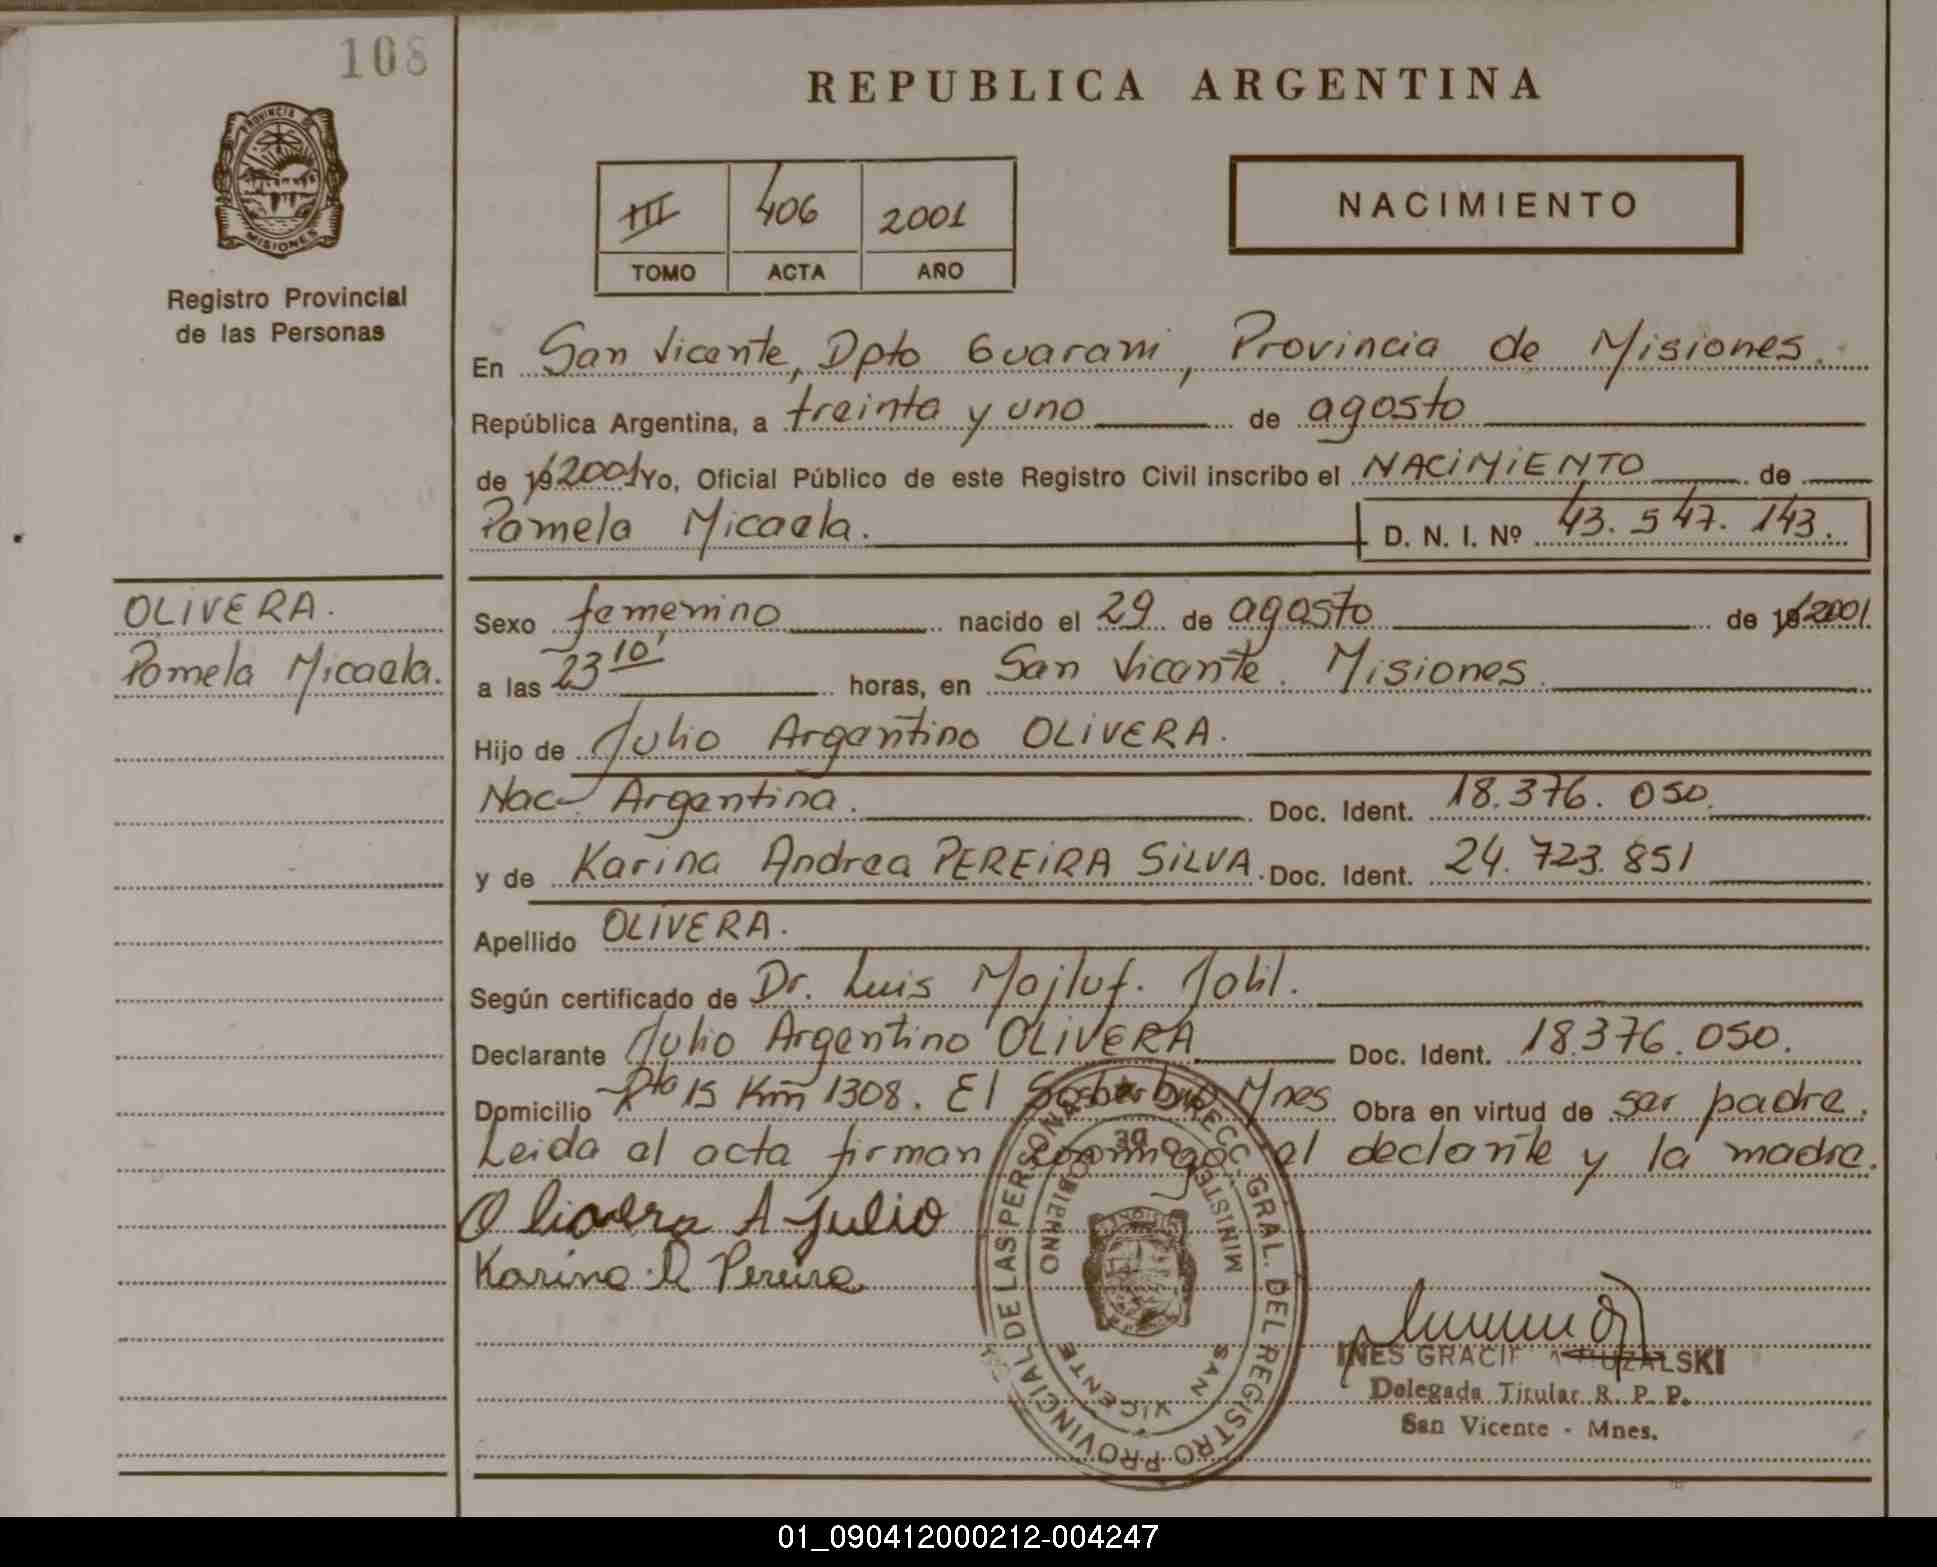 108
REPUBLICA ARGENTINA
PROVINCIA DE
MISIONES
Registro Provincial
de las Personas
III 406 2001
TOMO ACTA AÑO
NACIMIENTO
En San Vicente, Dpto Guarani, Provincia de Misiones.
República Argentina, a treinta y uno de agosto
de 19 2001 Yo, Oficial Público de este Registro Civil inscribo el NACIMIENTO de
Pamela Micaela. D. N. I. Nº 43.547.143.
OLIVERA.
Pamela Micaela.
Sexo femenino nacido el 29 de agosto de 19 2001.
a las 23 10' horas, en San Vicente. Misiones.
Hijo de Julio Argentino OLIVERA.
Nac- Argentina. Doc. Ident. 18.376.050.
y de Karina Andrea PEREIRA SILVA. Doc. Ident. 24.723.851
Apellido OLIVERA.
Según certificado de Dr. Luis Majluf.
Declarante Julio Argentino OLIVERA Doc. Ident. 18.376.050.
Domicilio Rta 15 Km 1308. El Soberbio Mnes Obra en virtud de ser padre.
Leida el acta firman conmigo el declante y la madre.
Olivera A Julio
Karina A Pereira
DIRECC. GRAL. DEL REGISTRO PROVINCIAL DE LAS PERSONAS
MINISTERIO DE GOBIERNO
SAN VICENTE
INES GRACI
Delegada Titular R. P. P.
San Vicente - Mnes.
01_090412000212-004247